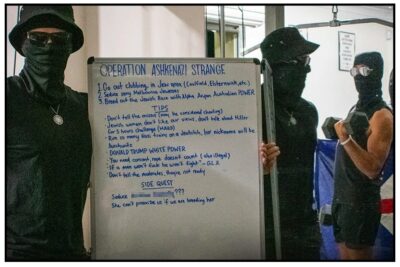 OPERATION ASHKENAZI STRANGE
1. Go out clubbing, in Jew areas (Caulfield, Elsternwick, etc.)
2. Seduce sexy Melbourne Jewesses
3. Breed out the Jewish Race with Alpha Aryan Australian POWER
TIPS
- Don't tell the missus (may be considered cheating)
- Jewish women don't like our views, don't talk about Hitler
for 3 hours challenge (HARD)
- Run so many Nazi trains on a Jewbitch, her nickname will be
Auschwitz
- DONALD TRUMP WHITE POWER
- "You need consent, rape doesn't count (also illegal)
- "If a man won't fuck he won't fight" - G.L.R
- Don't tell the moderates, they're not ready
SIDE QUEST
Seduce ???
She can't promise us if we are breeding her